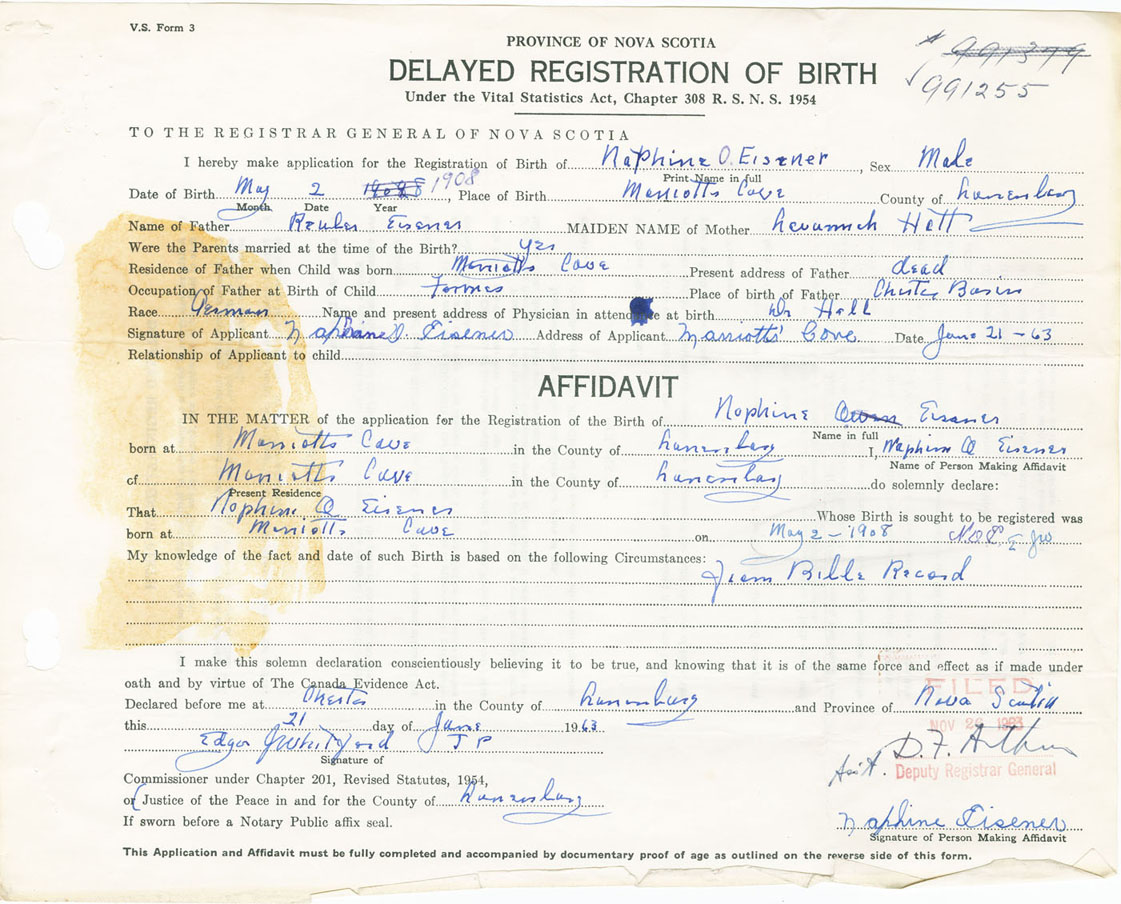 V.S. Form 3
PROVINCE OF NOVA SCOTIA
DELAYED REGISTRATION OF BIRTH
991379
991255
Under the Vital Statistics Act, Chapter 308 R. S. N. S. 1954
TO THE REGISTRAR GENERAL OF NOVA SCOTIA
I hereby make application for the Registration of Birth of Naphine O. Eisener, Sex Male
Print Name in full
Date of Birth May 2 1908, Place of Birth Marriotts Cove County of Lunenburg
Month Date Year
Name of Father Reuben Eisener MAIDEN NAME of Mother Levannich Hatt
Were the Parents married at the time of the Birth? yes
Residence of Father when Child was born Marriotts Cove Present address of Father dead
Occupation of Father at Birth of Child Farmer Place of birth of Father Chester Basin
Race German Name and present address of Physician in attendance at birth Dr Hall
Signature of Applicant Naphine O. Eisener Address of Applicant Marriotts Cove Date June 21 - 63
Relationship of Applicant to child
AFFIDAVIT
IN THE MATTER of the application for the Registration of the Birth of Naphine Owen Eisener
Name in full
born at Marriotts Cove in the County of Lunenburg I, Naphine O Eisener
Name of Person Making Affidavit
of Marriotts Cove in the County of Lunenburg do solemnly declare:
Present Residence
That Naphine O Eisener Whose Birth is sought to be registered was
born at Marriotts Cove on May 2 - 1908 N.O.E. E JW
My knowledge of the fact and date of such Birth is based on the following Circumstances:
From Bible Record
I make this solemn declaration conscientiously believing it to be true, and knowing that it is of the same force and effect as if made under
oath and by virtue of The Canada Evidence Act.
FILED
Declared before me at Chester in the County of Lunenburg and Province of Nova Scotia
this 21 day of June 1963
NOV 26 1963
Edgar J Whitford J P
D. F. Arthur
Signature of
Asst. Deputy Registrar General
Commissioner under Chapter 201, Revised Statutes, 1954,
or (Justice of the Peace in and for the County of Lunenburg
If sworn before a Notary Public affix seal.
Naphine Eisener
Signature of Person Making Affidavit
This Application and Affidavit must be fully completed and accompanied by documentary proof of age as outlined on the reverse side of this form.